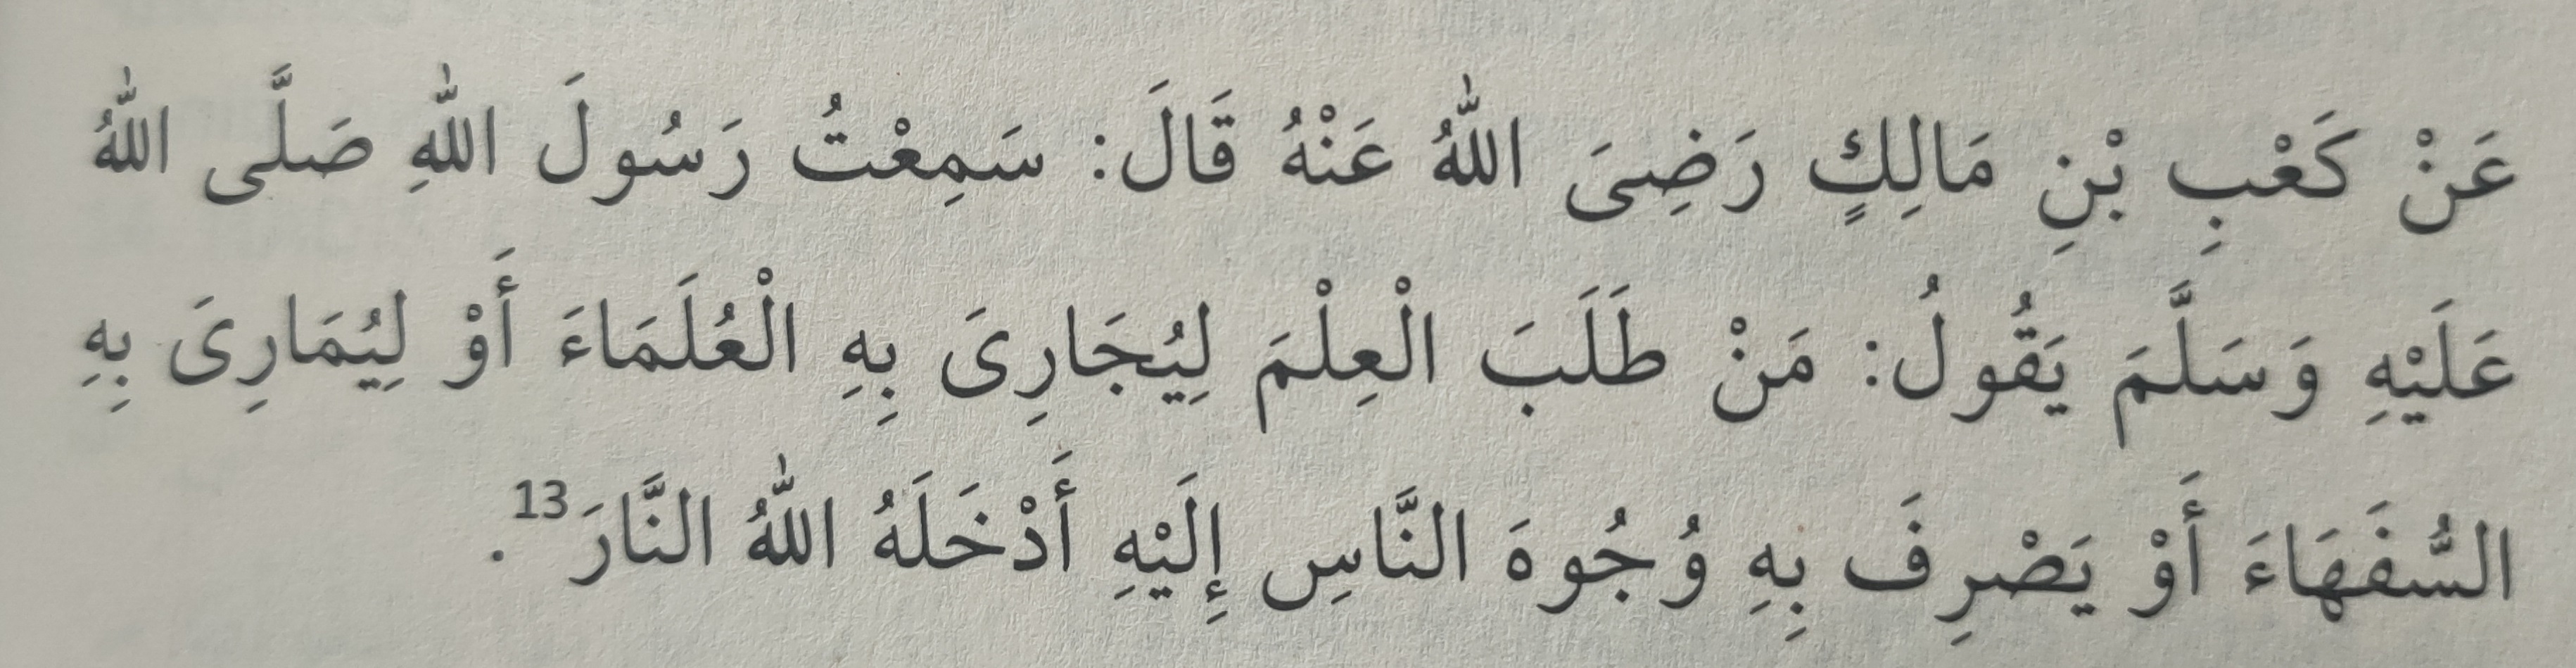 عَنْ كَعْبِ بْنِ مَالِكٍ رَضِىَ اللّٰهُ عَنْهُ قَالَ: سَمِعْتُ رَسُولَ اللّٰهِ صَلَّى اللّٰهُ
عَلَيْهِ وَسَلَّمَ يَقُولُ: مَنْ طَلَبَ الْعِلْمَ لِيُجَارِىَ بِهِ الْعُلَمَاءَ أَوْ لِيُمَارِىَ بِهِ
السُّفَهَاءَ أَوْ يَصْرِفَ بِهِ وُجُوهَ النَّاسِ إِلَيْهِ أَدْخَلَهُ اللّٰهُ النَّارَ13.